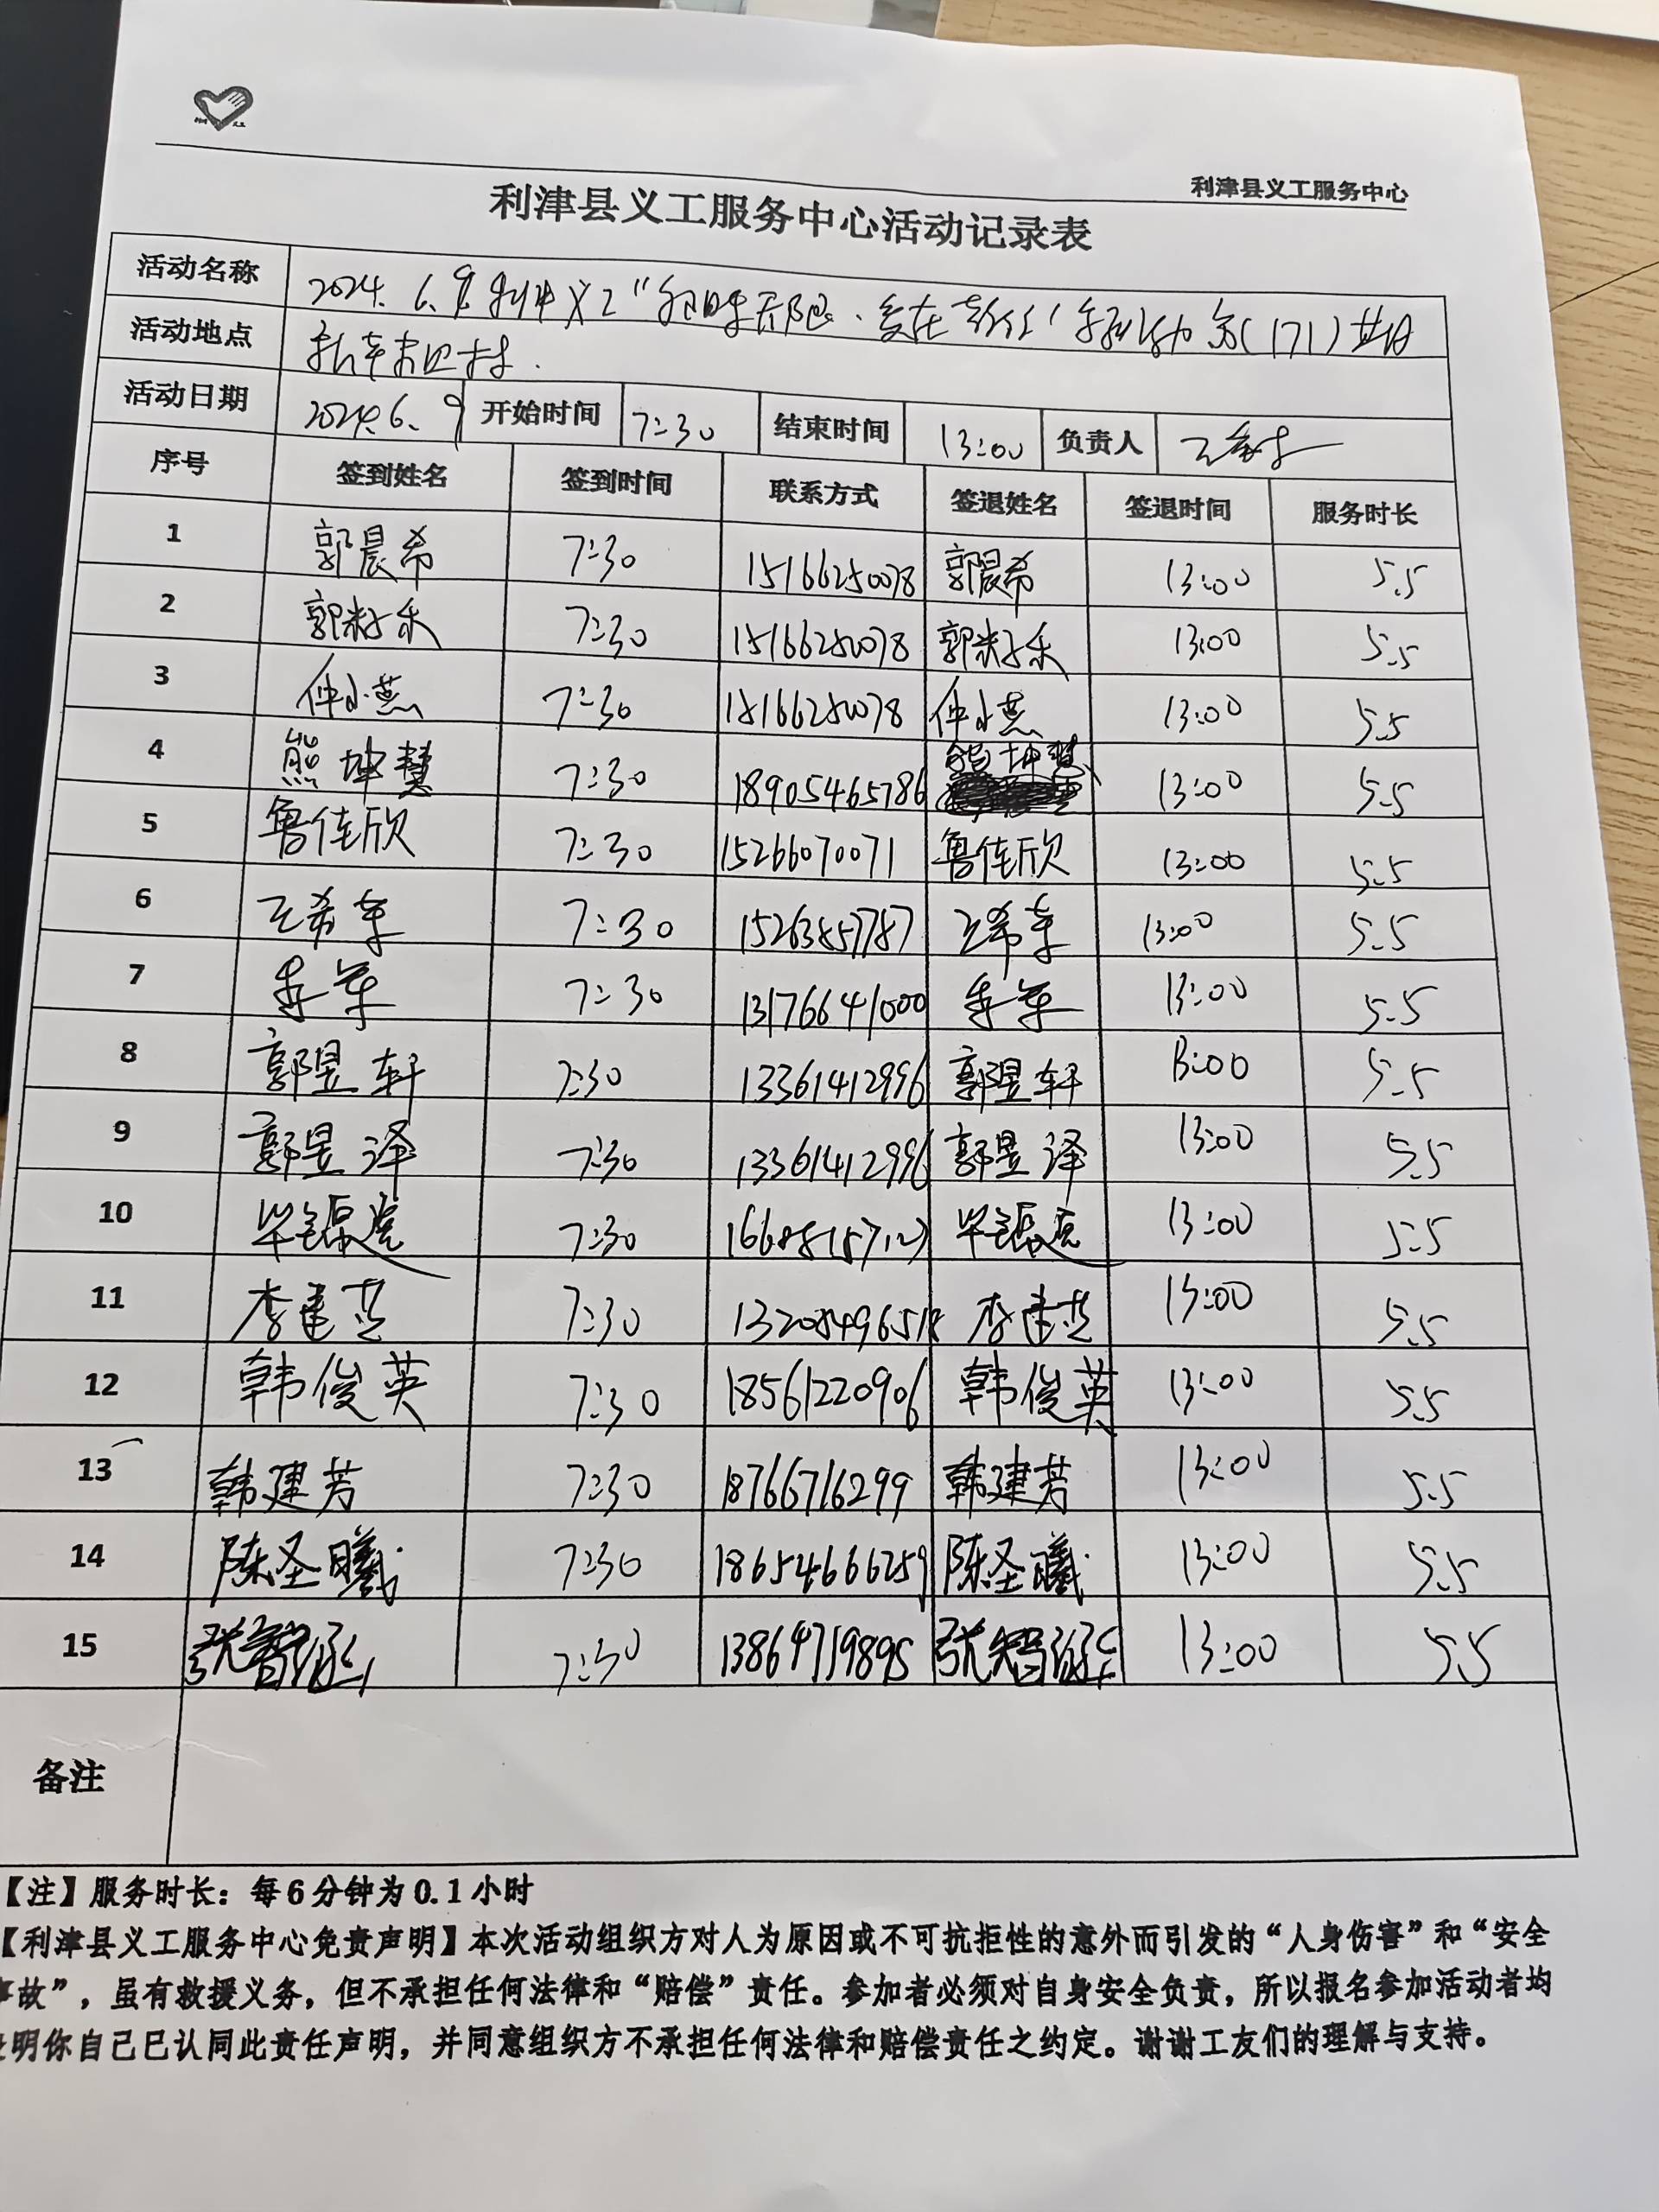 利津县义工服务中心
利津县义工服务中心活动记录表
活动名称 2024.6.9 利津义工" (171)
活动地点
活动日期 2024.6.9 开始时间 7:30 结束时间 13:00 负责人
序号 签到姓名 签到时间 联系方式 签退姓名 签退时间 服务时长
1 郭晨希 7:30 15166250078 郭晨希 13:00 5.5
2 郭 乐 7:30 15166250078 郭 乐 13:00 5.5
3 仲小燕 7:30 15166250078 仲小燕 13:00 5.5
4 熊坤慧 7:30 18905465786 熊坤慧 13:00 5.5
5 鲁佳欣 7:30 15266070071 鲁佳欣 13:00 5.5
6 王希 7:30 15263857787 王希 13:00 5.5
7 7:30 13176641000 13:00 5.5
8 郭昱轩 7:30 13361412996 郭昱轩 13:00 5.5
9 郭昱泽 7:30 13361412996 郭昱泽 13:00 5.5
10 毕 7:30 毕 13:00 5.5
11 李建 7:30 李建 13:00 5.5
12 韩俊英 7:30 18561220906 韩俊英 13:00 5.5
13 韩建芳 7:30 18766716299 韩建芳 13:00 5.5
14 陈圣曦 7:30 18654666259 陈圣曦 13:00 5.5
15 张智涵 7:30 13864719895 张智涵 13:00 5.5
备注
【注】服务时长：每6分钟为0.1小时
【利津县义工服务中心免责声明】本次活动组织方对人为原因或不可抗拒性的意外而引发的“人身伤害”和“安全
事故”，虽有救援义务，但不承担任何法律和“赔偿”责任。参加者必须对自身安全负责，所以报名参加活动者均
明你自己已认同此责任声明，并同意组织方不承担任何法律和赔偿责任之约定。谢谢工友们的理解与支持。